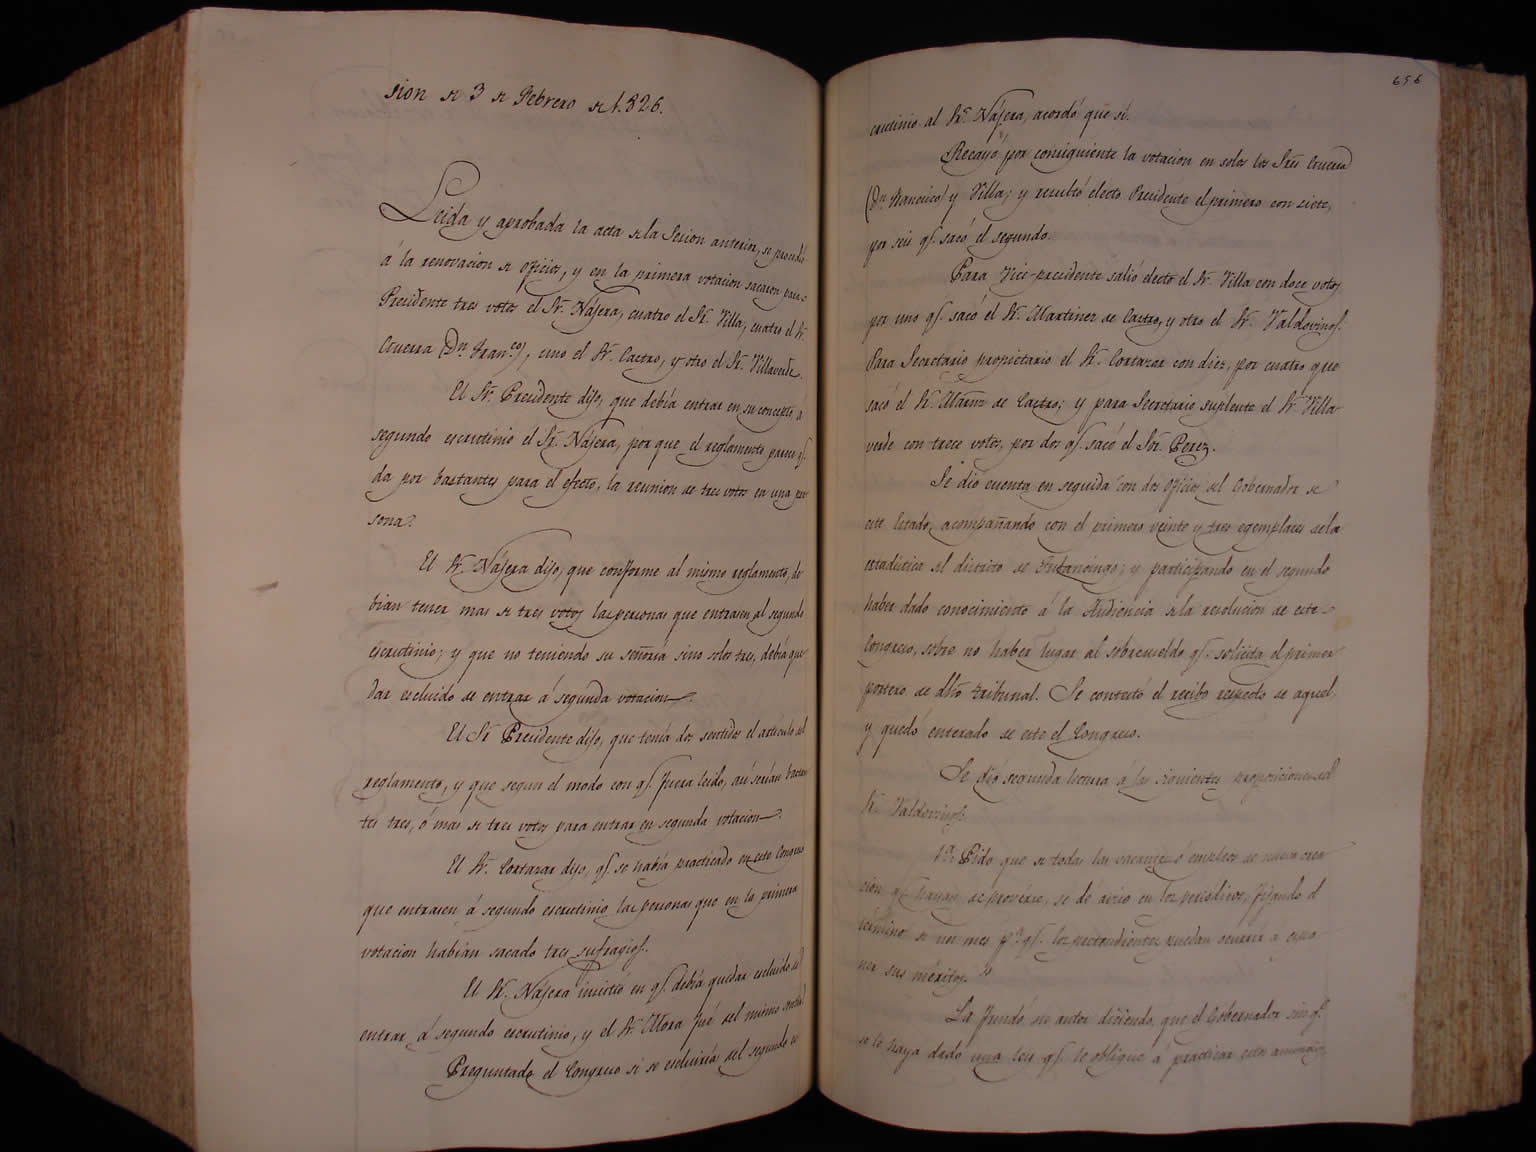 sion de 3 de Febrero de 1.826.
Leida y aprobada la acta de la Sesion anterior, se procedió
á la renovacion de oficios, y en la primera votacion sacaron para
Presidente tres votos el Sr. Nájera, cuatro el Sr. Villa, cuatro el Sr.
Guerra (Dn. Franco.), uno el Sr. Castro, y otro el Sr. Villaverde.
El Sr. Presidente dijo, que debia entrar en su concepto á
segundo escrutinio el Sr. Nájera, por que el reglamento parece q.
da por bastantes para el efecto, la reunion de tres votos en una per
sona.
El Sr. Nájera dijo, que conforme al mismo reglamento, de
bian tener mas de tres votos las personas que entrasen al segundo
escrutinio; y que no teniendo su señoría sino solos tres, debia que
dar escluido de entrar á segunda votacion.
El Sr. Presidente dijo, que tenía dos sentidos el artículo del
reglamento, y que segun el modo con q. fuera leido, así serían bastan
tes tres, ó mas de tres votos para entrar en segunda votacion.
El Sr. Cortazar dijo, q. se habia practicado en este Congreso
que entrasen á segundo escrutinio las personas que en la primera
votacion habian sacado tres sufragios.
El Sr. Nájera insistió en q. debia quedar escluido de
entrar á segundo escrutinio, y el Sr. Mora fué del mismo sentir
Preguntado el Congreso si se escluiría del segundo es
656
crutinio al Sr. Nájera, acordó que sí.
Recayó por consiguiente la votacion en solos los Sres. Guerra
(Dn. Francisco) y Villa; y resultó electo Presidente el primero con siete,
por seis q. sacó el segundo.
Para Vice-presidente salió electo el Sr. Villa con doce votos
por uno q. sacó el Sr. Martinez de Castro, y otro el Sr. Valdovinos.
Para Secretario propietario el Sr. Cortazar con diez, por cuatro que
sacó el Sr. Martnz de Castro; y para Secretario suplente el Sr. Villa
verde con trece votos, por dos q. sacó el Sr. Perez.
Se dió cuenta en seguida con dos oficios del Gobernador de
este Estado, acompañando con el primero veinte y tres egemplares de la
estadística del distrito de Tulancingo; y participando en el segundo
haber dado conocimiento á la Audiencia de la resolucion de este
Congreso, sobre no haber lugar al sobresueldo q. solicita el primer
portero de dho tribunal. Se contestó el recibo respecto de aquel
y quedó enterado de este el Congreso.
Se dió segunda lectura á las siguientes proposiciones del
Sr. Valdovinos.
1a. Pido que de todas las vacantes ó empleos de nueva crea
cion q. hayan de proveerse, se dé aviso en los periódicos, fijando el
término de un mes pa. q. los pretendientes puedan ocurrir a espo
ner sus méritos."
La fundó su autor diciendo, que el Gobernador sin q.
se le haya dado una ley q. le obligue á practicar estos anuncios